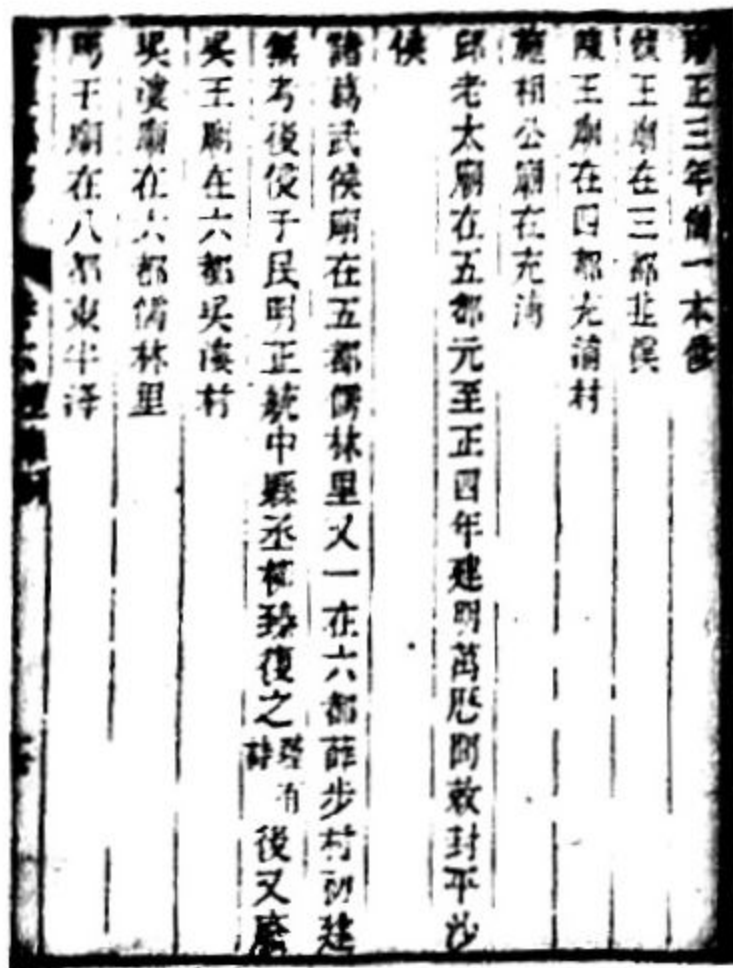 正三年僧一本重
王廟在三都北
陳王廟在四都充浦村
施相公廟在充浦
邱老太廟在五都元至正四年建明萬厯間敕封平
侯
諸葛武侯廟在五都儒林里又一在六都薛步村初建
無考後侵于民明正統中縣丞復之後又廢
吳王廟在六都吳漊村
吳漊廟在六都儒林里
王廟在八都東